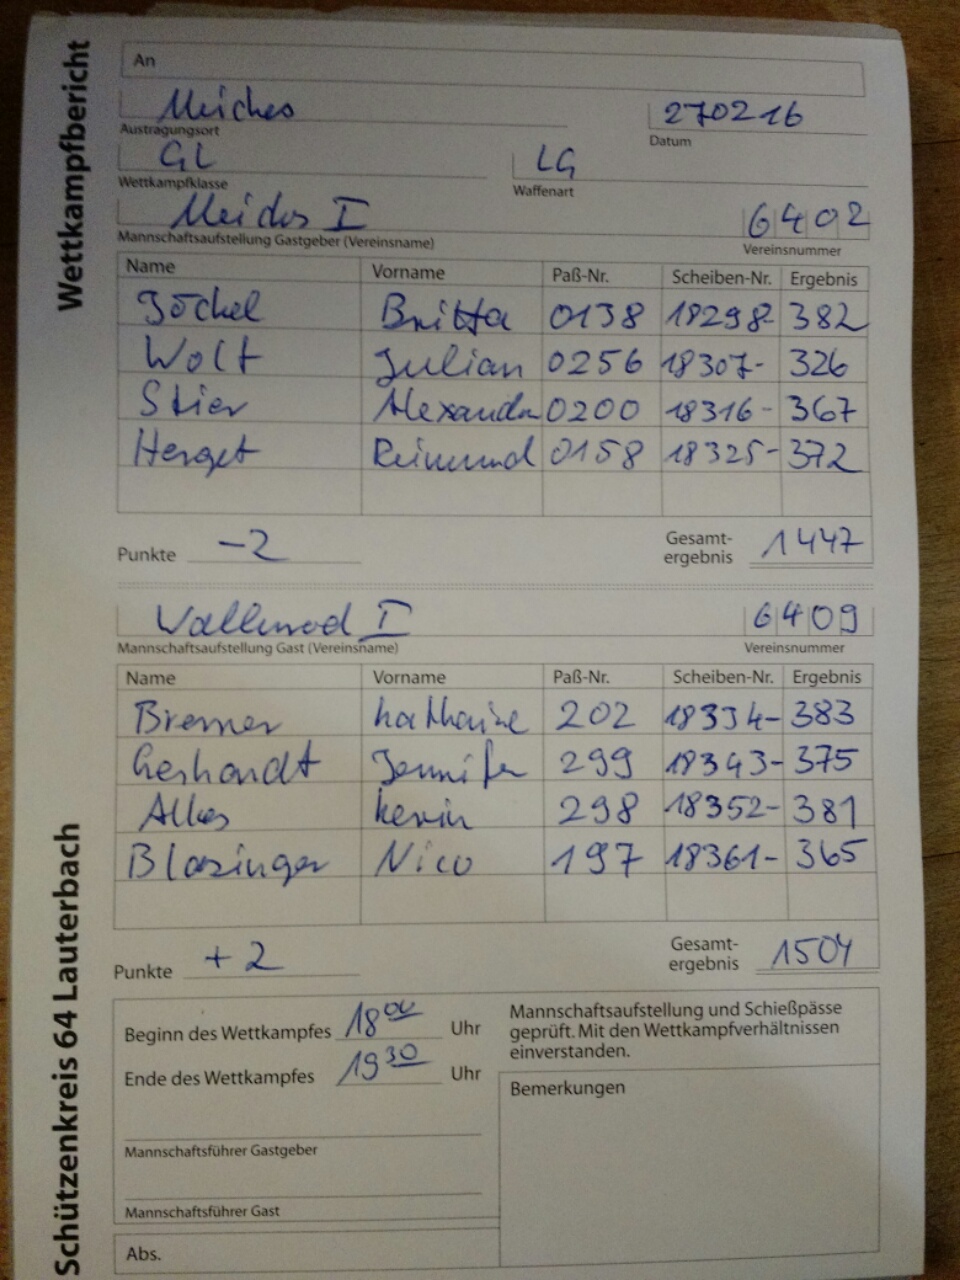 Wettkampfbericht
Schützenkreis 64 Lauterbach
An
Meiches
Austragungsort
270216
Datum
GL
Wettkampfklasse
LG
Waffenart
Meiches I
Mannschaftsaufstellung Gastgeber (Vereinsname)
6402
Vereinsnummer
Name Vorname Paß-Nr. Scheiben-Nr. Ergebnis
Jöckel Britta 0138 18298- 382
Wolf Julian 0256 18307- 326
Stier Alexander 0200 18316- 367
Herget Reimund 0158 18325- 372
Punkte -2
Gesamt-
ergebnis 1447
Wallenrod I
Mannschaftsaufstellung Gast (Vereinsname)
6409
Vereinsnummer
Name Vorname Paß-Nr. Scheiben-Nr. Ergebnis
Bremer Katharine 202 18334- 383
Gerhardt Jennifer 299 18343- 375
Alles Kevin 298 18352- 381
Blazinger Nico 197 18361- 365
Punkte +2
Gesamt-
ergebnis 1504
Beginn des Wettkampfes 18 00 Uhr
Ende des Wettkampfes 19 30 Uhr
Mannschaftsführer Gastgeber
Mannschaftsführer Gast
Abs.
Mannschaftsaufstellung und Schießpässe
geprüft. Mit den Wettkampfverhältnissen
einverstanden.
Bemerkungen